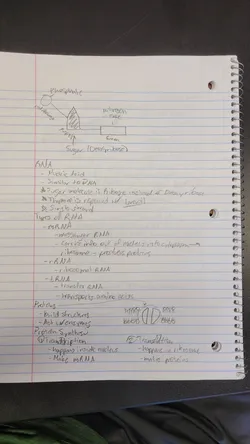 phosphate
nitrogen
base
Sugar (Deoxyribose)
RNA
- Nucleic Acid
- Similar to DNA
① Sugar molecule is Ribose instead of Deoxyribose
② Thymine is replaced w/ Uracil
③ Single strand
Types of RNA
- mRNA
- messenger RNA
- Carries info out of nucleus into cytoplasm
ribosome - produces proteins
- rRNA
- ribosomal RNA
- tRNA
- transfer RNA
- transports amino acids
Proteins
- Build structures
- Act as enzymes
Protein Synthesis
① Transcription
- happens in the nucleus
- Make mRNA
② Translation
- happens in ribosomes
- make proteins